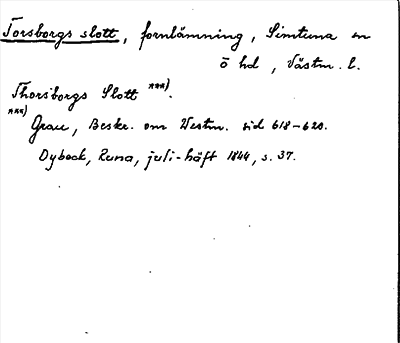 Torsborgs slott, fornlämning, Simtuna sn
ö hd, Västm. l.
Thorsborgs Slott ***).
***)
Grau, Beskr. om Westm. sid 618-620.
Dybeck, Runa, juli-häft 1844, s. 37.